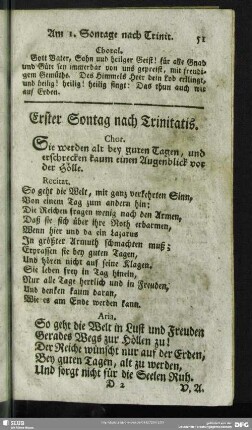 Am 1. Sontage nach Trinit. 51
Choral.
Gott Vater, Sohn und heiliger Geist! für alle Gnad
und Güte sey immerdar von uns gepreist, mit freudi-
gem Gemüthe. Des Himmels Heer dein Lob erklingt,
und heilig! heilig! heilig singt: Das thun auch wir
auf Erden.
Erster Sontag nach Trinitatis.
Chor.
Sie werden alt bey guten Tagen, und
erschrecken kaum einen Augenblick vor
der Hölle.
Recitat.
So geht die Welt, mit ganz verkehrten Sinn,
Von einem Tag zum andern hin:
Die Reichen fragen wenig nach den Armen,
Daß sie sich über ihre Noth erbarmen,
Wenn hier und da ein Lazarus
In größter Armuth schmachten muß;
Erprassen sie bey guten Tagen,
Und hören nicht auf seine Klagen.
Sie leben frey in Tag hinein,
Nur alle Tage herrlich und in Freuden,
Und denken kaum daran,
Wie es am Ende werden kann.
Aria.
So geht die Welt in Lust und Freuden
Gerades Wegs zur Höllen zu!
Der Reiche wünscht nur auf der Erden,
Bey guten Tagen, alt zu werden,
Und sorgt nicht für die Seelen Ruh.
D 2 V. A.